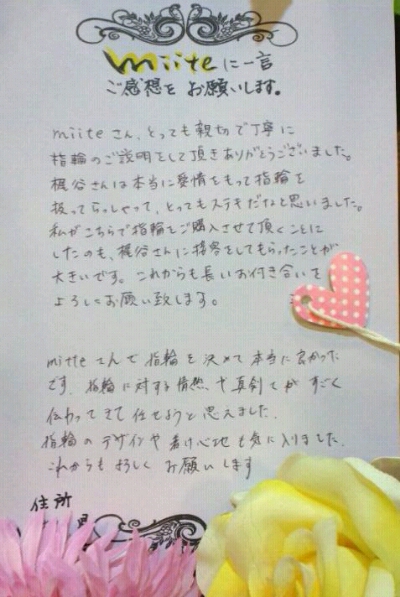 miiteに一言
ご感想を お願いします。
miiteさん、とっても親切で丁寧に
指輪のご説明をして頂きありがとうございました。
梶谷さんは本当に愛情をもって指輪を
扱ってらっしゃって、とってもステキだなと思いました。
私がこちらで指輪をご購入させて頂くことに
したのも、梶谷さんに接客をしてもらったことが
大きいです。これからも長いお付き合いを
よろしくお願い致します。
miiteさんで指輪を決めて本当に良かった
です。指輪に対する情熱、や真剣さが すごく
伝わってきて任せようと思えました。
指輪のデザインや着け心地も気に入りました。
これからもよろしく お願いします
住所